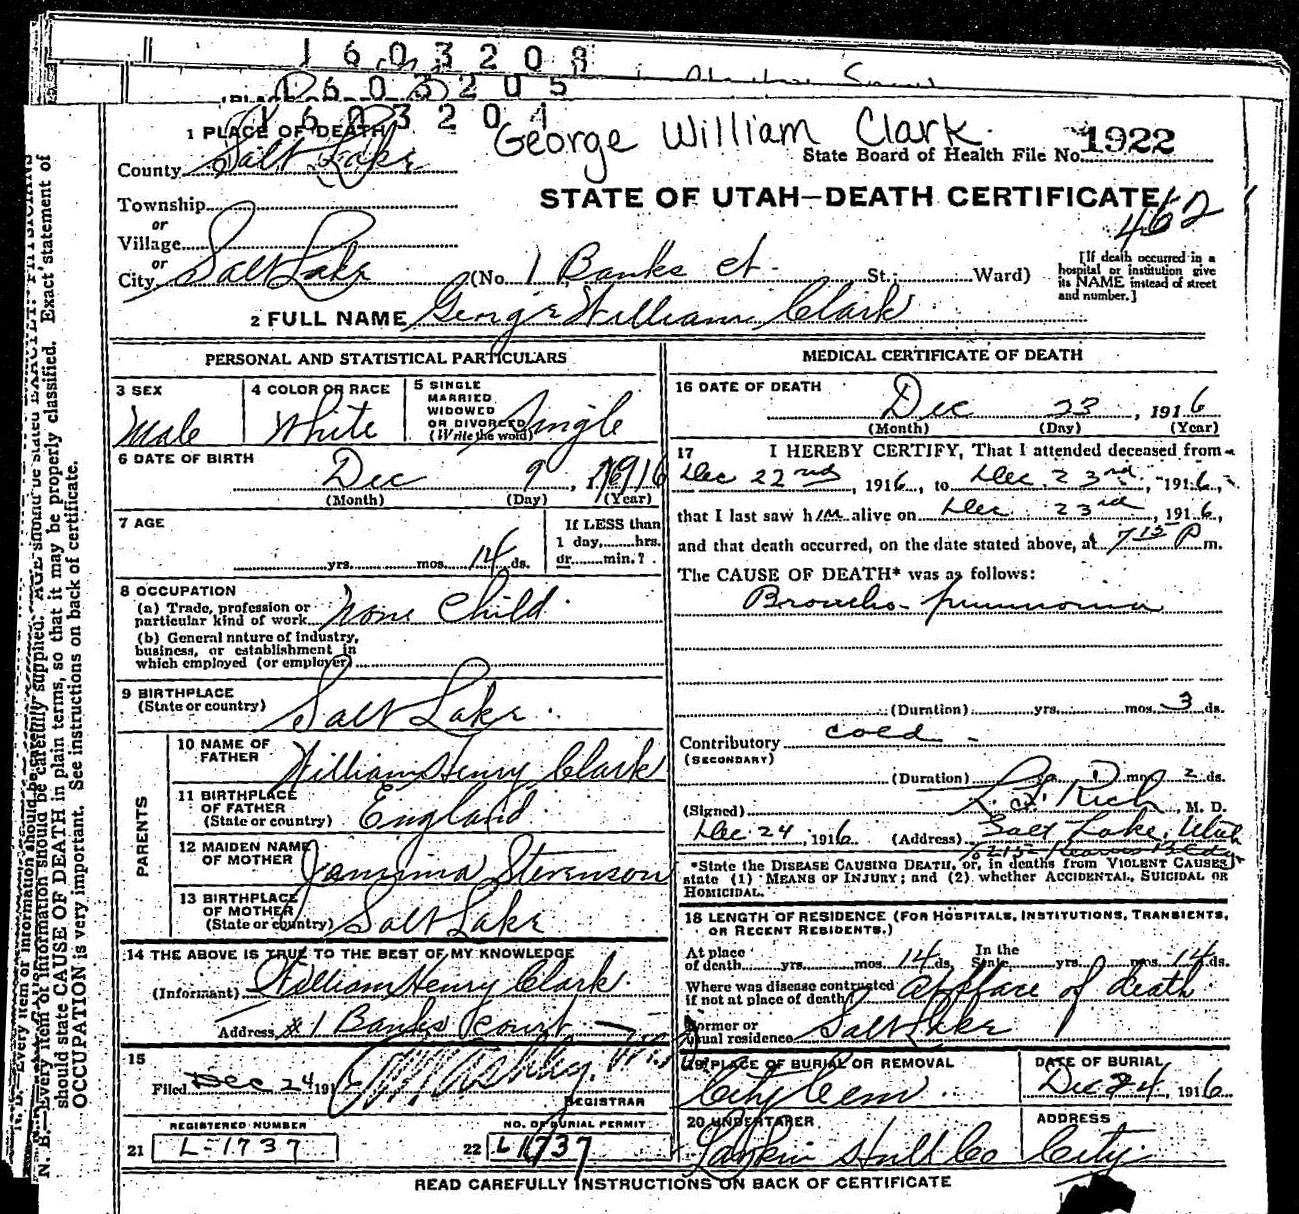 1 6 0 3 2 0 8
1 6 0 3 2 0 5
1 6 0 3 2 0 1
George William Clark.
1 PLACE OF DEATH
County Salt Lake
State Board of Health File No. 1922
STATE OF UTAH—DEATH CERTIFICATE
462
Township
or
Village
or
City Salt Lake (No. 1 Banks ct. St.; Ward)
[If death occurred in a hospital or institution give its NAME instead of street and number.]
2 FULL NAME George William Clark
PERSONAL AND STATISTICAL PARTICULARS
3 SEX Male
4 COLOR OR RACE White
5 SINGLE MARRIED WIDOWED OR DIVORCED (Write the word) Single
6 DATE OF BIRTH
Dec 9, 1916
(Month) (Day) (Year)
7 AGE
yrs. mos. 14 ds.
If LESS than
1 day, hrs.
or min.?
8 OCCUPATION
(a) Trade, profession or
particular kind of work None Child.
(b) General nature of industry,
business, or establishment in
which employed (or employer)
9 BIRTHPLACE
(State or country) Salt Lake.
PARENTS
10 NAME OF
FATHER William Henry Clark
11 BIRTHPLACE
OF FATHER
(State or country) England
12 MAIDEN NAME
OF MOTHER Jemima Stevenson
13 BIRTHPLACE
OF MOTHER
(State or country) Salt Lake
14 THE ABOVE IS TRUE TO THE BEST OF MY KNOWLEDGE
(Informant) William Henry Clark.
Address # 1 Banks Court
15
Filed Dec 24 191
REGISTRAR
REGISTERED NUMBER
21 L-1737
NO. OF BURIAL PERMIT
22 L1737
MEDICAL CERTIFICATE OF DEATH
16 DATE OF DEATH
Dec 23, 1916
(Month) (Day) (Year)
17 I HEREBY CERTIFY, That I attended deceased from
Dec 22nd, 1916, to Dec. 23rd, 1916,
that I last saw him alive on Dec 23rd, 1916,
and that death occurred, on the date stated above, at 7 15 P m.
The CAUSE OF DEATH* was as follows:
Broncho-pneumonia
(Duration) yrs. mos. 3 ds.
Contributory cold -
(SECONDARY)
(Duration) yrs. mos. 2 ds.
(Signed) L. Rich, M. D.
Dec 24, 1916 (Address) Salt Lake, Utah
*State the DISEASE CAUSING DEATH, or, in deaths from VIOLENT CAUSES,
state (1) MEANS OF INJURY; and (2) whether ACCIDENTAL, SUICIDAL OR
HOMICIDAL.
18 LENGTH OF RESIDENCE (FOR HOSPITALS, INSTITUTIONS, TRANSIENTS,
OR RECENT RESIDENTS.)
At place of death yrs. mos. 14 ds. In the State yrs. mos. 14 ds.
Where was disease contracted
if not at place of death? At place of death
Former or
usual residence Salt Lake
19 PLACE OF BURIAL OR REMOVAL
City Cem.
DATE OF BURIAL
Dec 24, 1916
20 UNDERTAKER
Larkin Hull Co
ADDRESS
City.
READ CAREFULLY INSTRUCTIONS ON BACK OF CERTIFICATE
N. B.—Every item of information should be carefully supplied. AGE should be stated EXACTLY. PHYSICIANS
should state CAUSE OF DEATH in plain terms, so that it may be properly classified. Exact statement of
OCCUPATION is very important. See instructions on back of certificate.